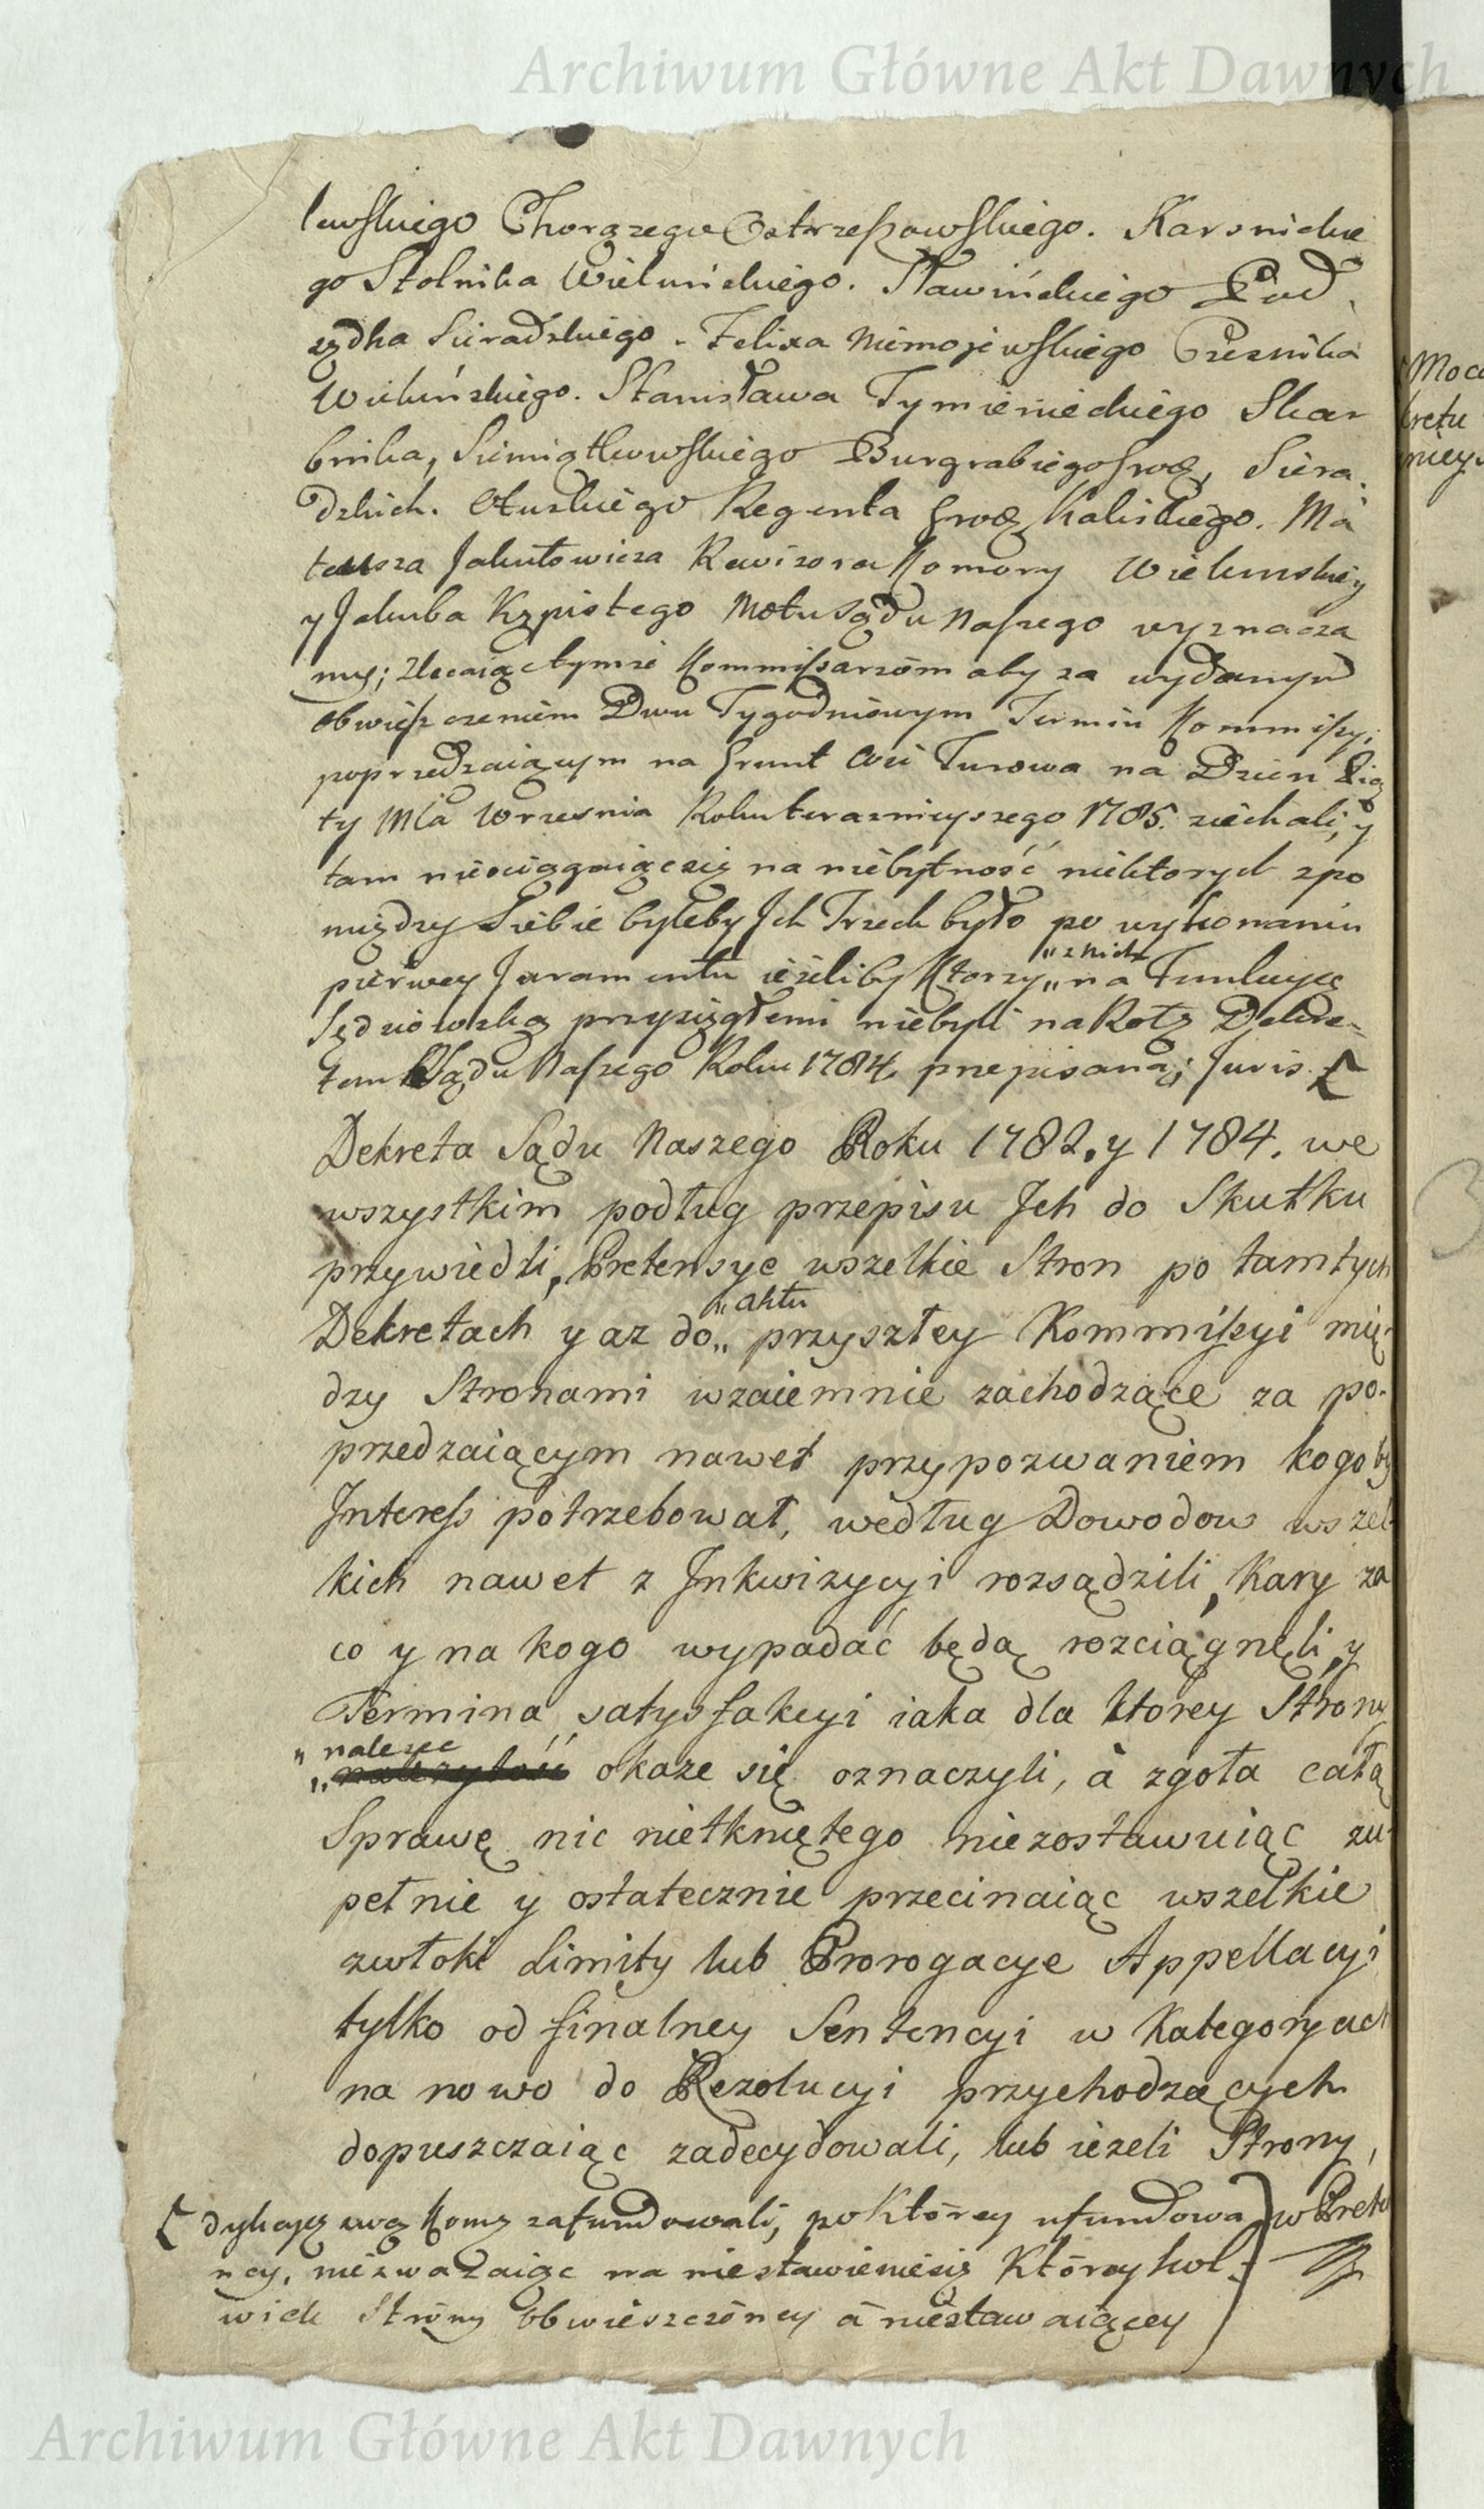 Archiwum Główne Akt Dawnych
lewskiego Chorązego Ostrzeszowskiego. Karsnickie
go Stolnika Wielunskiego. Sławińskiego Pod
sędka Sieradzkiego. Felixa Niemojewskiego Czesnika
Wieluńskiego. Stanisława Tymienieckiego Skar
bnika, Siemiątkowskiego Burgrabiego Grodz, Siera.
dzkich. Regenta Grodz Kaliskiego. Ma
teusza Jakutowicza Rewizora Komory Wielunskiey
y Jakuba Kępistego Nołu Sądu Naszego wyznacza
my; Zlecaiąc tymże Kommissarzom aby za wydanym
obwieszczeniem Dwu Tygodniowym Termin Kommissyi
poprzedzaiącym na Grunt Wsi Turowa na Dzien Pią
ty Mca Wrzesnia Roku teraznieyszego 1785. ziechali, y
tam nieociągaiąc się na niebytność niektorych zpo
między Siebie byleby Jch Trzech było po wykonaniu
pierwey Juramentu ieżeliby Ktorzy „z nich „na Funkcyę
Sędziowską przysięgłemi niebyli na Rotę Dekre-
tem Sądu Naszego Roku 1784. przepisaną; Juris
Dekreta Sądu Naszego Roku 1782. y 1784. we
wszystkim podług przepisu Jch do Skutku
przywiedli, Pretensye wszelkie Stron po tamtych
Dekretach y az do „aktu „ przyszłey Kommissyi mię-
dzy Stronami wzaiemnie zachodzące za po-
przedzaiącym nawet przypozwaniem kogoby
Jnteress potrzebował, według Dowodow wszel-
kich nawet z Jnkwizycyi rozsądzili, Kary za
co y na kogo wypadać będą rozciągnęli, y
Termina satysfakcyi iaka dla ktorey Strony
„nalezec
„należytość okaze się oznaczyli, à zgoła całą
Sprawę nic nietkniętego niezostawuiąc zu-
pełnie y ostatecznie przecinaiąc wszelkie
zwłoki Limity lub Prorogacye Appellacyi
tylko od finalney Sentencyi w Kategoryach
na nowo do Rezolucyi przychodzących
dopuszczaiąc zadecydowali, lub ieżeli Strony
dykcyą swą Komą zafundowali, po Którey ufundowa
ney, niezważaiąc na niestawieniesię Któreykol-
wiek Strony obwieszczoney à niestawaiącey
Archiwum Główne Akt Dawnych